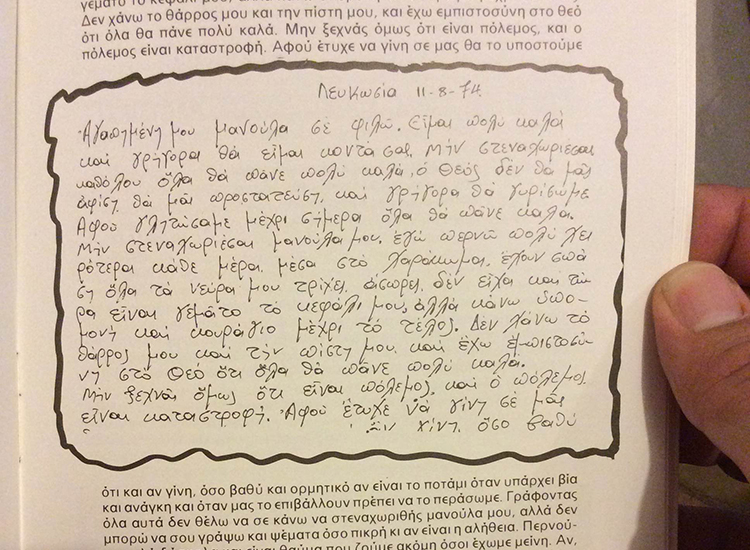 γεμάτο το κεφάλι μου,
Δεν χάνω το θάρρος μου και την πίστη μου, και έχω εμπιστοσύνη στο θεό
ότι όλα θα πάνε πολύ καλά. Μην ξεχνάς όμως ότι είναι πόλεμος, και ο
πόλεμος είναι καταστροφή. Αφού έτυχε να γίνη σε μας θα το υποστούμε
Λευκωσία 11-8-74.
Αγαπημένη μου μανούλα σε φιλώ. Είμαι πολύ καλά
και γρήγορα θα είμαι κοντά σας. Μην στεναχωριέσαι
καθόλου όλα θα πάνε πολύ καλά, ο Θεός δεν θα μας
αφίση θα μας προστατεύση, και γρήγορα θα γυρίσωμε
Αφού γλητώσαμε μέχρι σήμερα όλα θα πάνε καλά.
Μην στεναχωριέσαι μανούλα μου. εγώ περνώ πολύ χει
ρότερα κάθε μέρα, μέσα στο χαράκωμα, έχουν σπά
ση όλα τα νεύρα μου τρίχες, άσπρες, δεν είχα και τώ
ρα είναι γεμάτο το κεφάλι μου, αλλά κάνω υπο-
μονή και κουράγιο μέχρι το τέλος. Δεν χάνω το
θάρρος μου και την πίστη μου, και έχω εμπιστοσύ
νη στο Θεό ότι όλα θα πάνε πολύ καλά.
Μην ξεχνάς όμως ότι είναι πόλεμος, και ο πόλεμος
είναι καταστροφή. Αφού έτυχε να γίνη σε μας
γίνη, όσο βαθύ
ότι και αν γίνη, όσο βαθύ και ορμητικό αν είναι το ποτάμι όταν υπάρχει βία
και ανάγκη και όταν μας το επιβάλλουν πρέπει να το περάσωμε. Γράφοντας
όλα αυτά δεν θέλω να σε κάνω να στεναχωριθής μανούλα μου, αλλά δεν
μπορώ να σου γράψω και ψέματα όσο πικρή κι αν είναι η αλήθεια. Περνού-
είναι θαύμα που ζούμε ακόμη όσοι έχωμε μείνη. Αν,